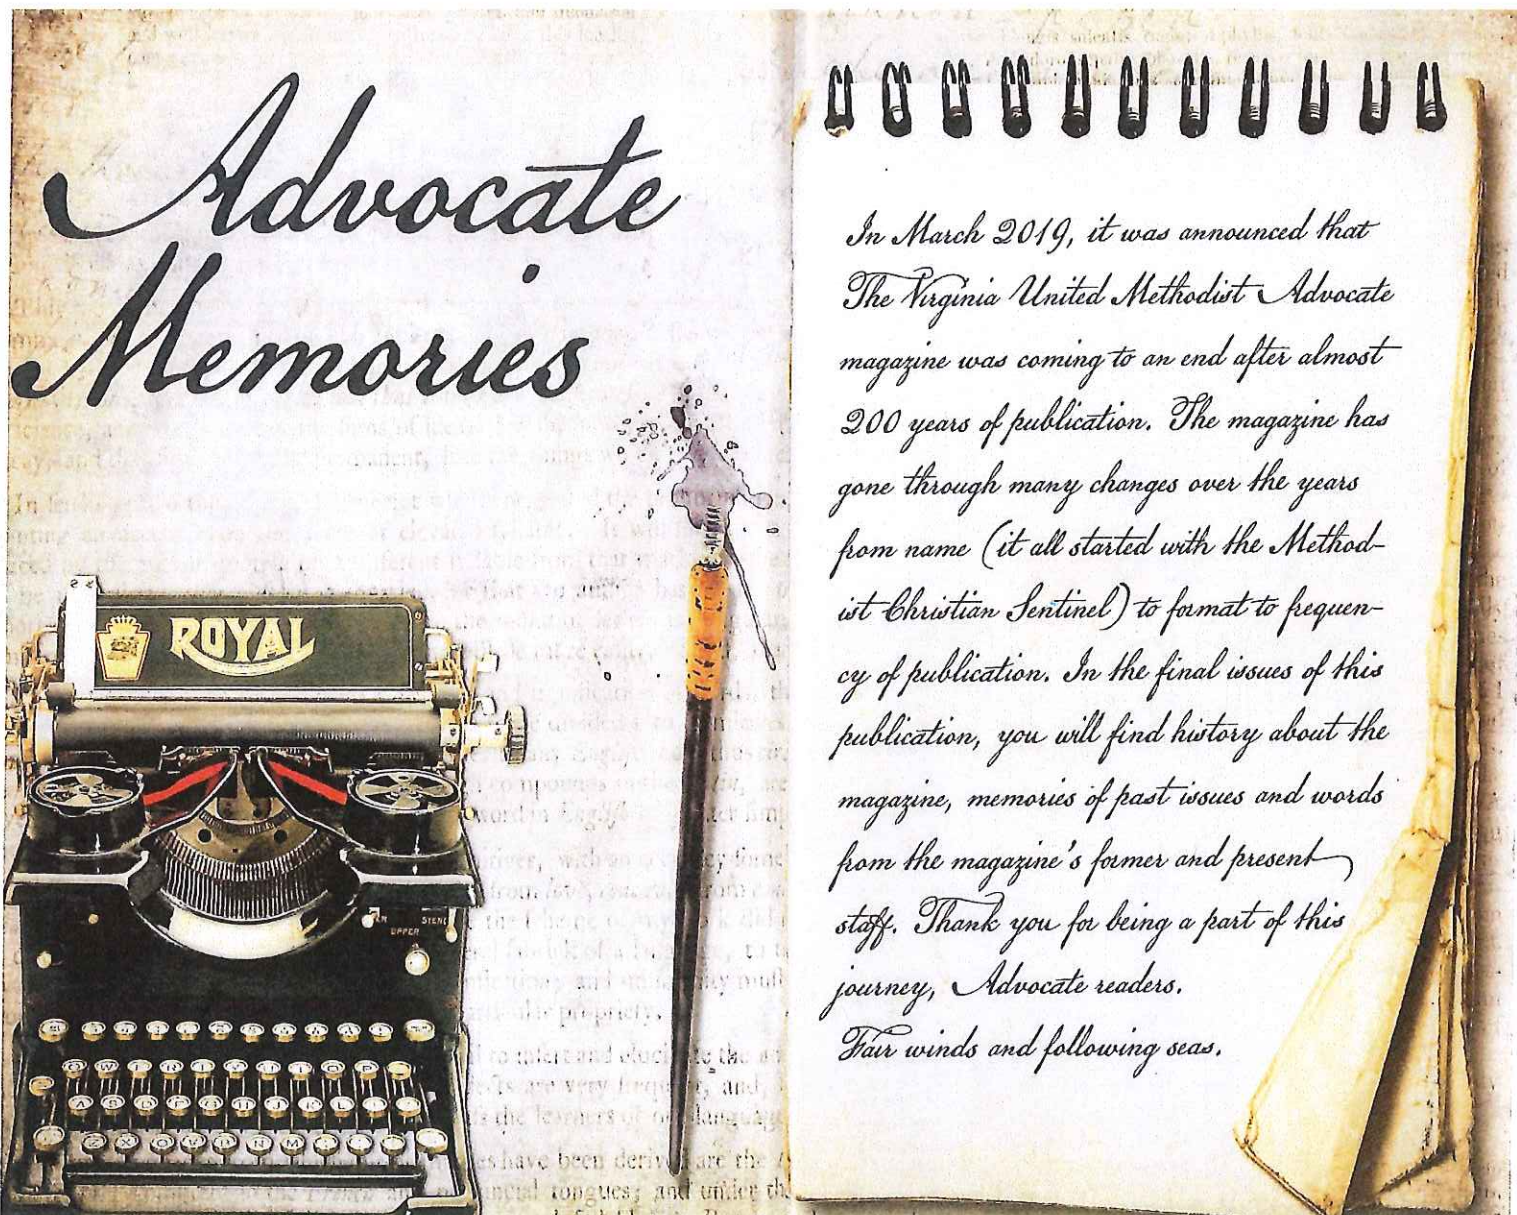 Advocate
Memories
ROYAL
UPPER
In March 2019, it was announced that
The Virginia United Methodist Advocate
magazine was coming to an end after almost
200 years of publication. The magazine has
gone through many changes over the years
from name (it all started with the Method-
ist Christian Sentinel) to format to frequen-
cy of publication. In the final issues of this
publication, you will find history about the
magazine, memories of past issues and words
from the magazine's former and present
staff. Thank you for being a part of this
journey, Advocate readers.
Fair winds and following seas.